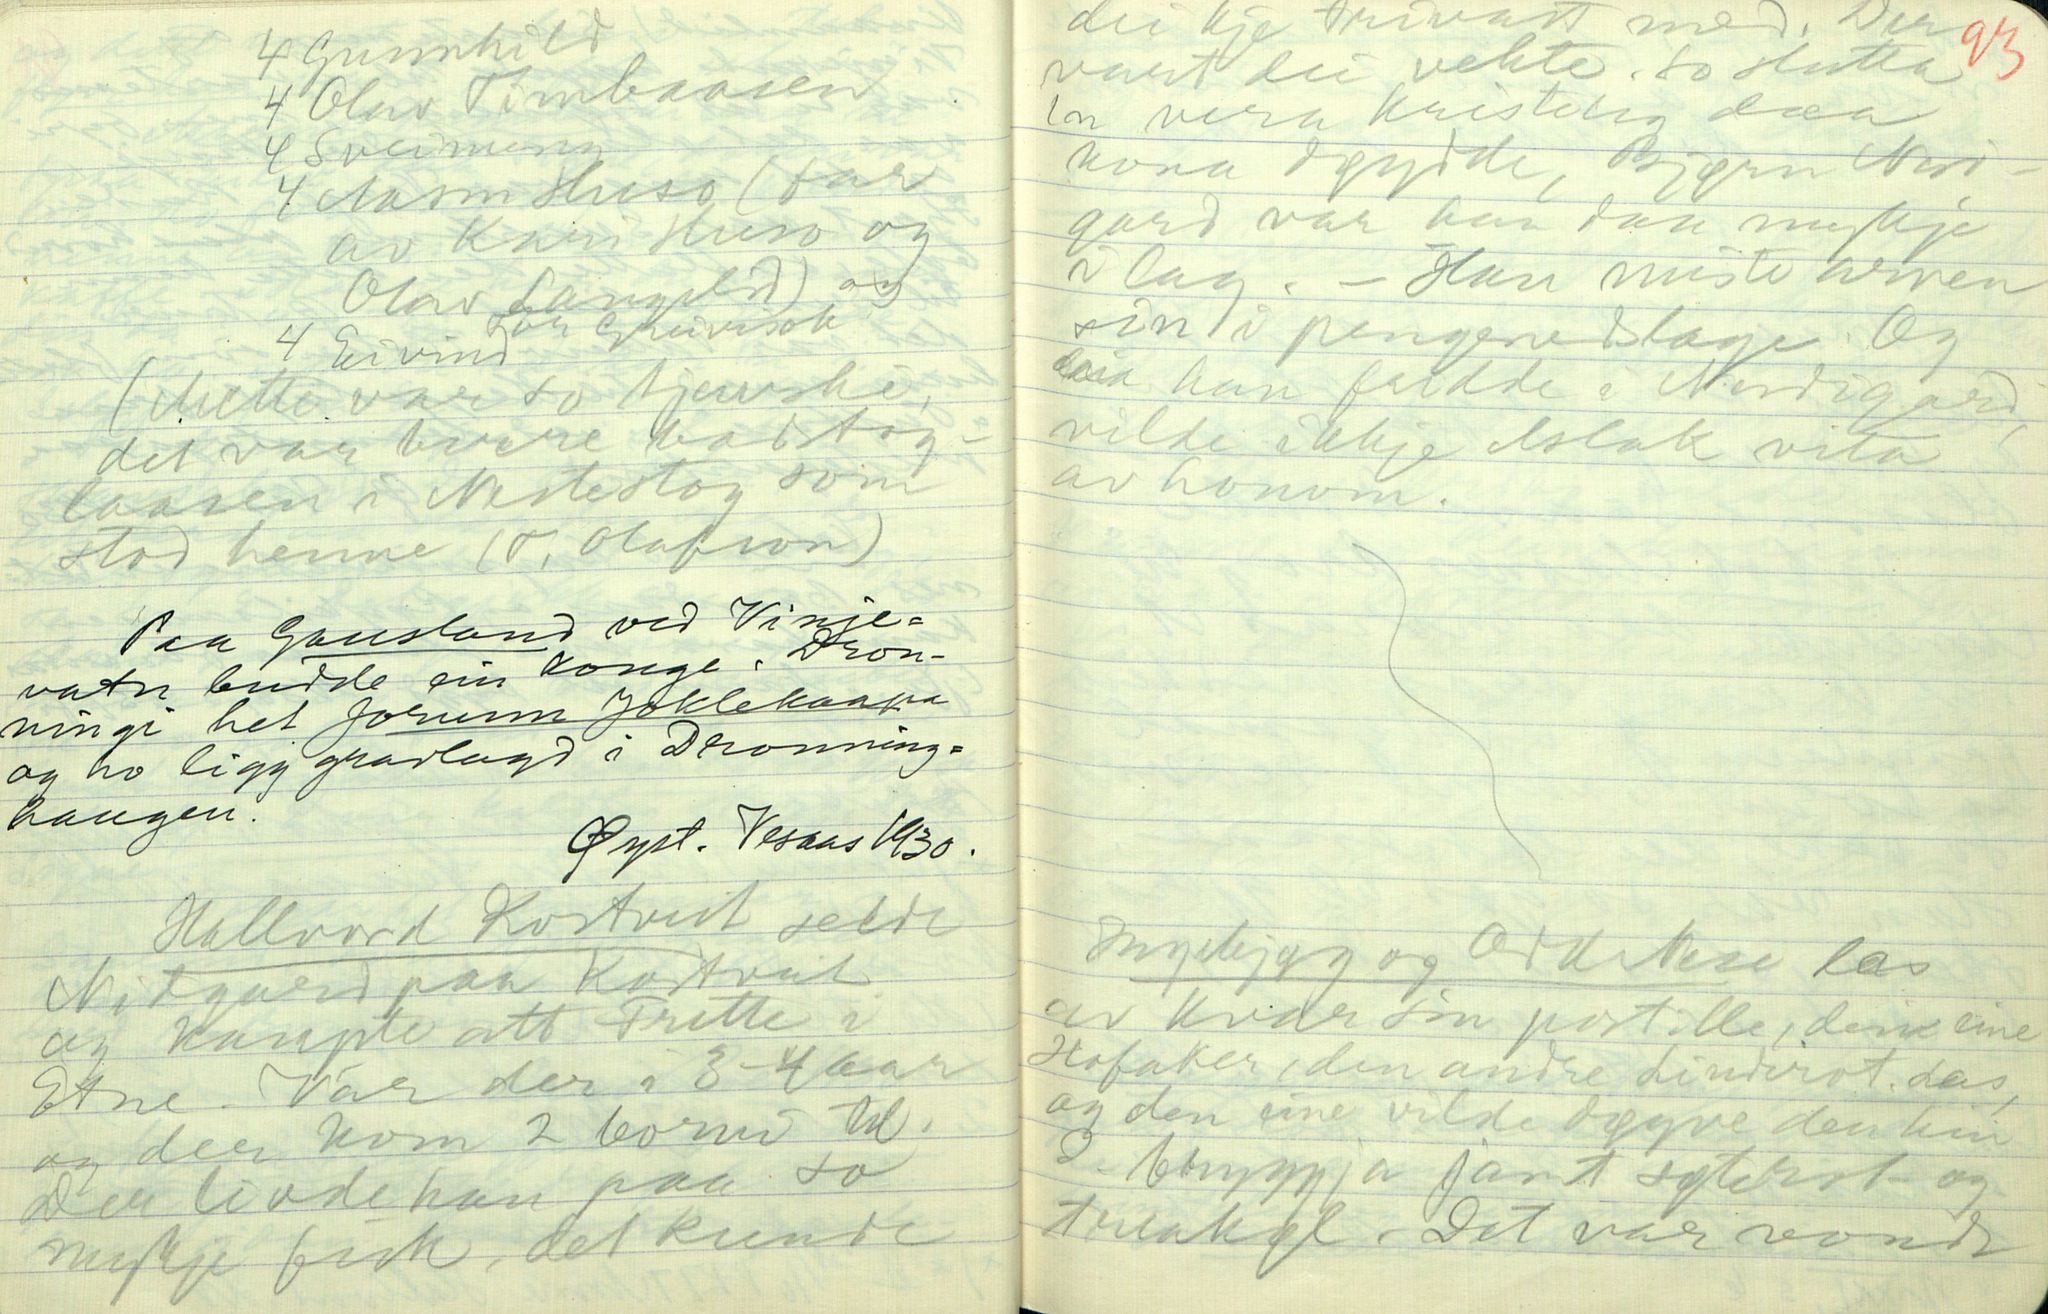 4 Gunnhild
4 Olav Timbaasen
4 Sveinung
4 Aasm Huso (far
av Kari Huso og
Olav Langelid) og
4 Eivind far Greivisok
(Mette var so tjerski,
det var berre badstog-
laasen i Nestestog som
stod henne (T. Olafson)
Paa Gausland ved Vinje=
vatn budde ein konge. Dron-
ningi het Jorunn Joklekaapa
og ho ligg gravlagd i Dronning=
haugen.
Øyst. Vesaas 1930.
Hallvord Kostveit selde
Nigard paa Kostveit
og kaupte att Frette i
Etne. Var der i 3-4 aar
og der kom 2 borni til.
Der livde han paa so
mykje fisk, det kunde
93
dei kje trivast med. Der
vart dei vekte. So slutta
en vera kristelig daa
kona døydde, Bjørn Nordi-
gard var han daa mykje
i lag. - Han miste arven
sin i pengenedslage. Og
daa han fødde i Nordigard,
vilde ikkje Aslak vita
av honom.
Ingebjørg og Odd Nese las
av kvar sin postille, den eine
Hofaker, den andre Linderot. Las,
og den eine vilde døyve den hin
2. bryggja jamt søterot og
treakel. Det var vondt